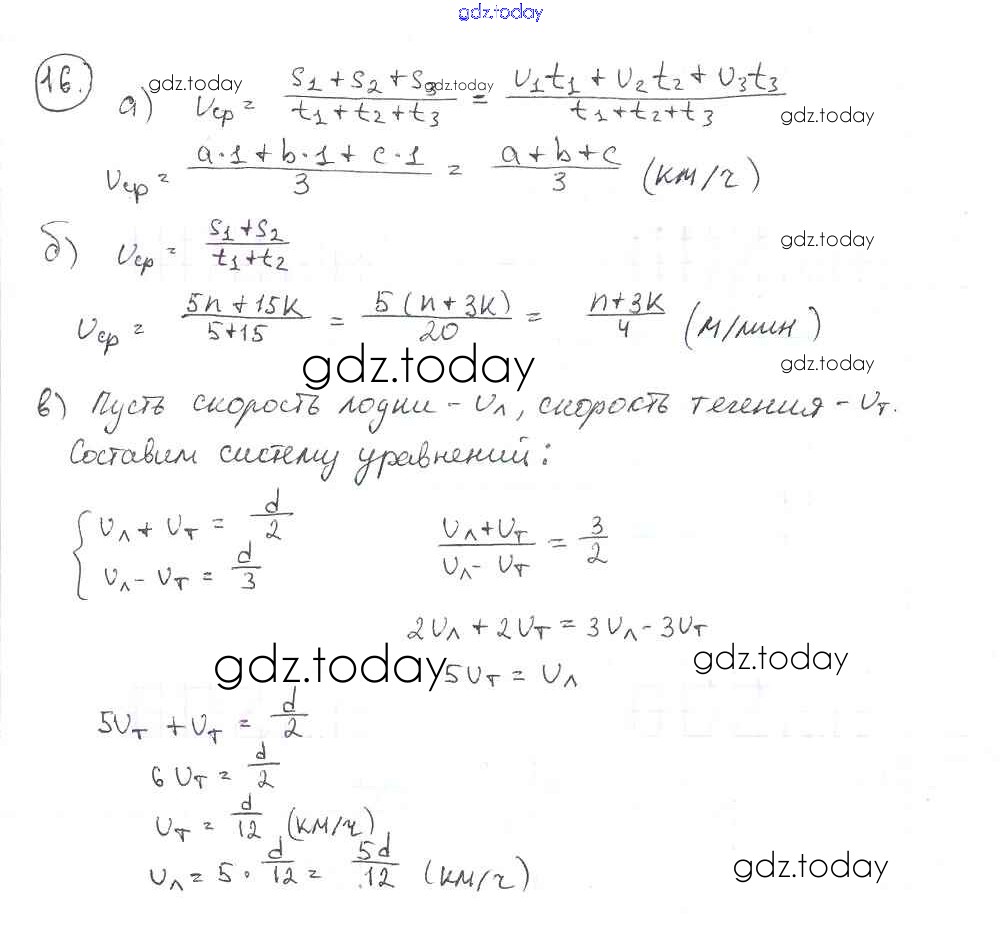 gdz.today
16.) gdz.today
а) Vср = (S1 + S2 + S3) / (t1 + t2 + t3) = (V1t1 + V2t2 + V3t3) / (t1 + t2 + t3) gdz.today gdz.today
Vср = (a·1 + b·1 + c·1) / 3 = (a + b + c) / 3 (км/ч)
б) Vср = (S1 + S2) / (t1 + t2) gdz.today
Vср = (5n + 15k) / (5+15) = 5(n + 3k) / 20 = (n + 3k) / 4 (м/мин)
gdz.today gdz.today
в) Пусть скорость лодки - Vл, скорость течения - Vт.
Составим систему уравнений:
{ Vл + Vт = d/2
Vл - Vт = d/3 (Vл + Vт) / (Vл - Vт) = 3/2
2Vл + 2Vт = 3Vл - 3Vт
gdz.today 5Vт = Vл gdz.today
5Vт + Vт = d/2
6Vт = d/2
Vт = d/12 (км/ч)
Vл = 5 · d/12 = 5d/12 (км/ч) gdz.today